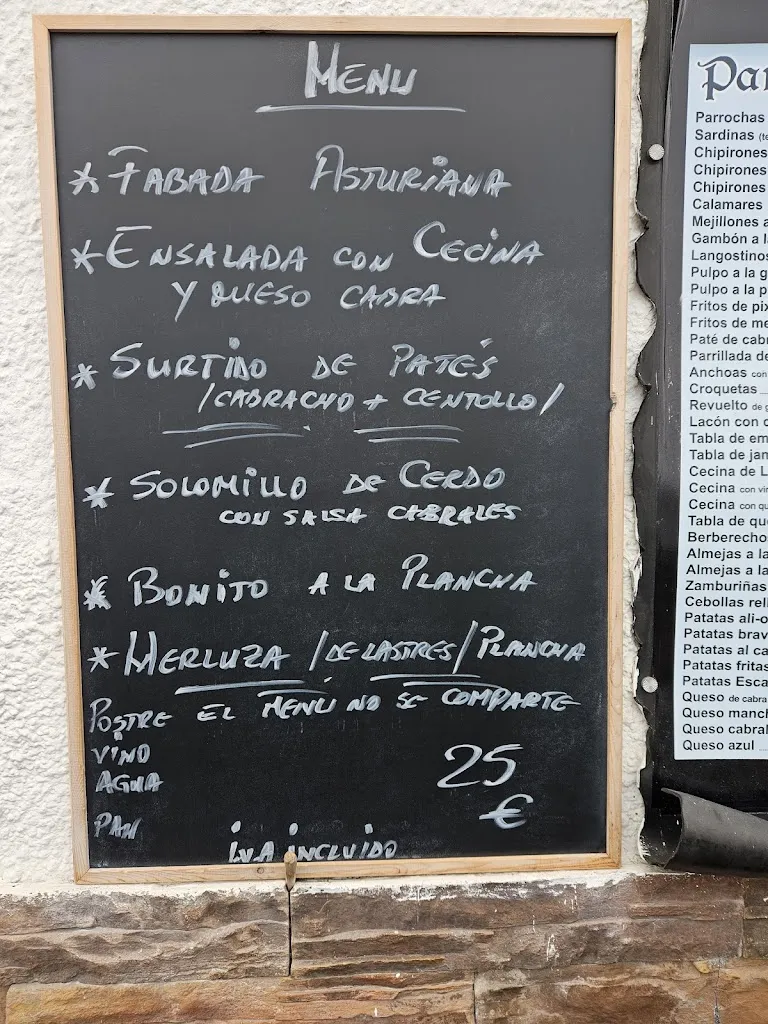 MENU
* FABADA ASTURIANA
* ENSALADA CON CECINA
Y QUESO CABRA
* SURTIDO DE PATÉS
/CABRACHO + CENTOLLO/
* SOLOMILLO DE CERDO
CON SALSA CABRALES
* BONITO A LA PLANCHA
* MERLUZA /DE LASTRES/ PLANCHA
POSTRE EL MENU NO SE COMPARTE
VINO
AGUA
25
€
PAN
I.V.A INCLUIDO
Par
Parrochas
Sardinas (te
Chipirones
Chipirones
Chipirones
Calamares
Mejillones a
Gambón a la
Langostinos
Pulpo a la g
Pulpo a la p
Fritos de pix
Fritos de me
Paté de cabr
Parrillada de
Anchoas con
Croquetas
Revuelto de g
Lacón con
Tabla de em
Tabla de jam
Cecina de L
Cecina con vin
Cecina con qu
Tabla de que
Berberechos
Almejas a la
Almejas a la
Zamburiñas
Cebollas rell
Patatas ali-o
Patatas brav
Patatas al ca
Patatas fritas
Patatas Esca
Queso de cabra
Queso manch
Queso cabral
Queso azul